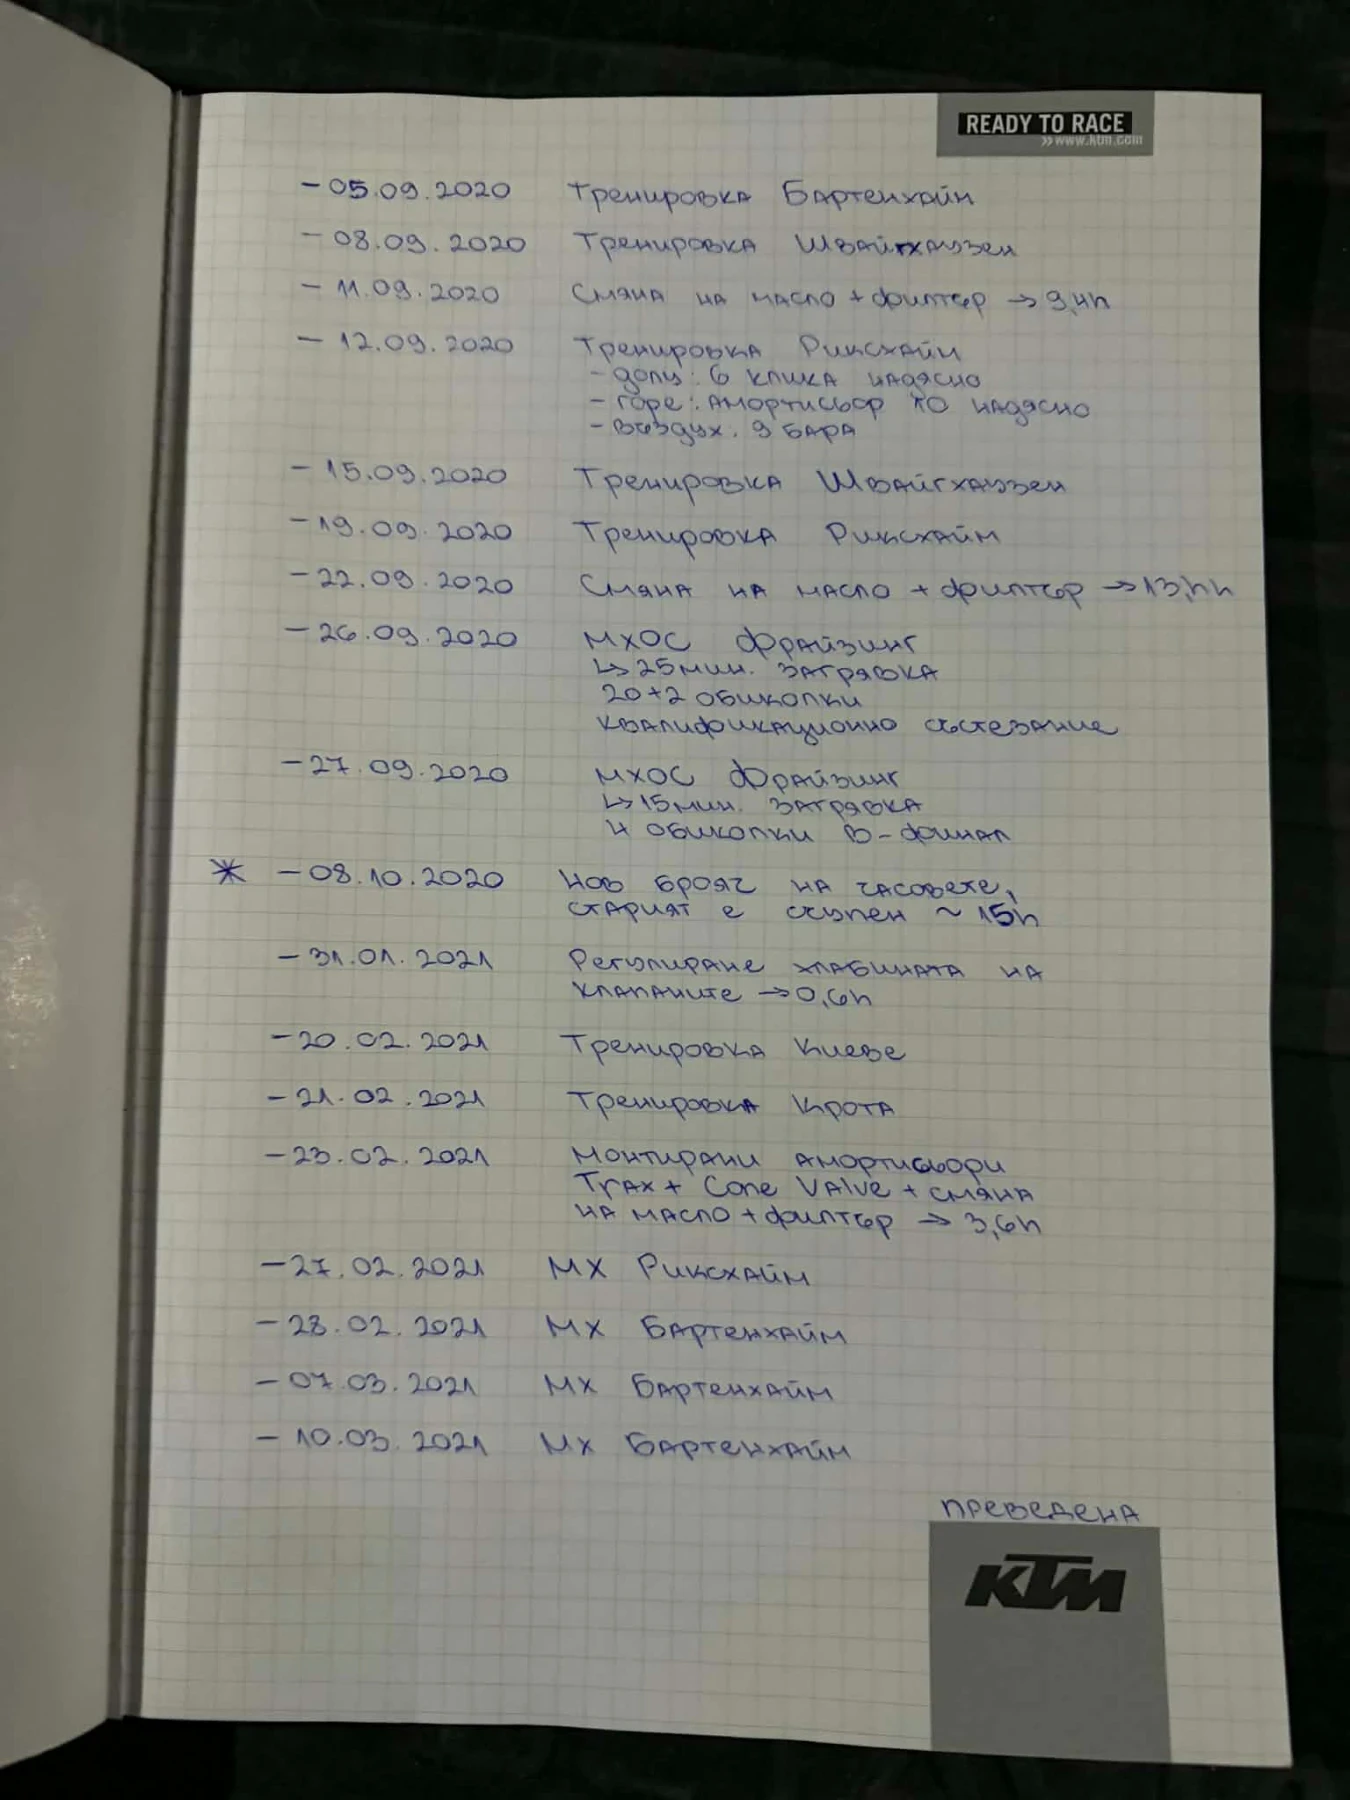 READY TO RACE
»www.ktm.com
- 05.09.2020 Тренировка Бартенхайм
- 08.09.2020 Тренировка Швайгхаузен
- 11.09.2020 Смяна на масло + филтър → 9,4h
- 12.09.2020 Тренировка Риксхайм
- долу: 6 клика надясно
- горе: амортисьор 10 надясно
- въздух: 9 бара
- 15.09.2020 Тренировка Швайгхаузен
- 19.09.2020 Тренировка Риксхайм
- 22.09.2020 Смяна на масло + филтър →
- 26.09.2020 МХОС Фрайзинг
↳ 25мин. загрявка
20+2 обиколки
квалификационно състезание
- 27.09.2020 МХОС Фрайзинг
↳ 15мин. загрявка
4 обиколки B-финал
* - 08.10.2020 Нов брояч на часовете,
старият е счупен ~ 15h
- 31.01.2021 Регулиране хлабината на
клапаните → 0,6h
- 20.02.2021 Тренировка Киеве
- 21.02.2021 Тренировка Крота
- 23.02.2021 Монтирани амортисьори
Trax + Cone Valve + смяна
на масло + филтър → 3,6h
- 27.02.2021 МХ Риксхайм
- 28.02.2021 МХ Бартенхайм
- 07.03.2021 МХ Бартенхайм
- 10.03.2021 МХ Бартенхайм
преведена
KTM